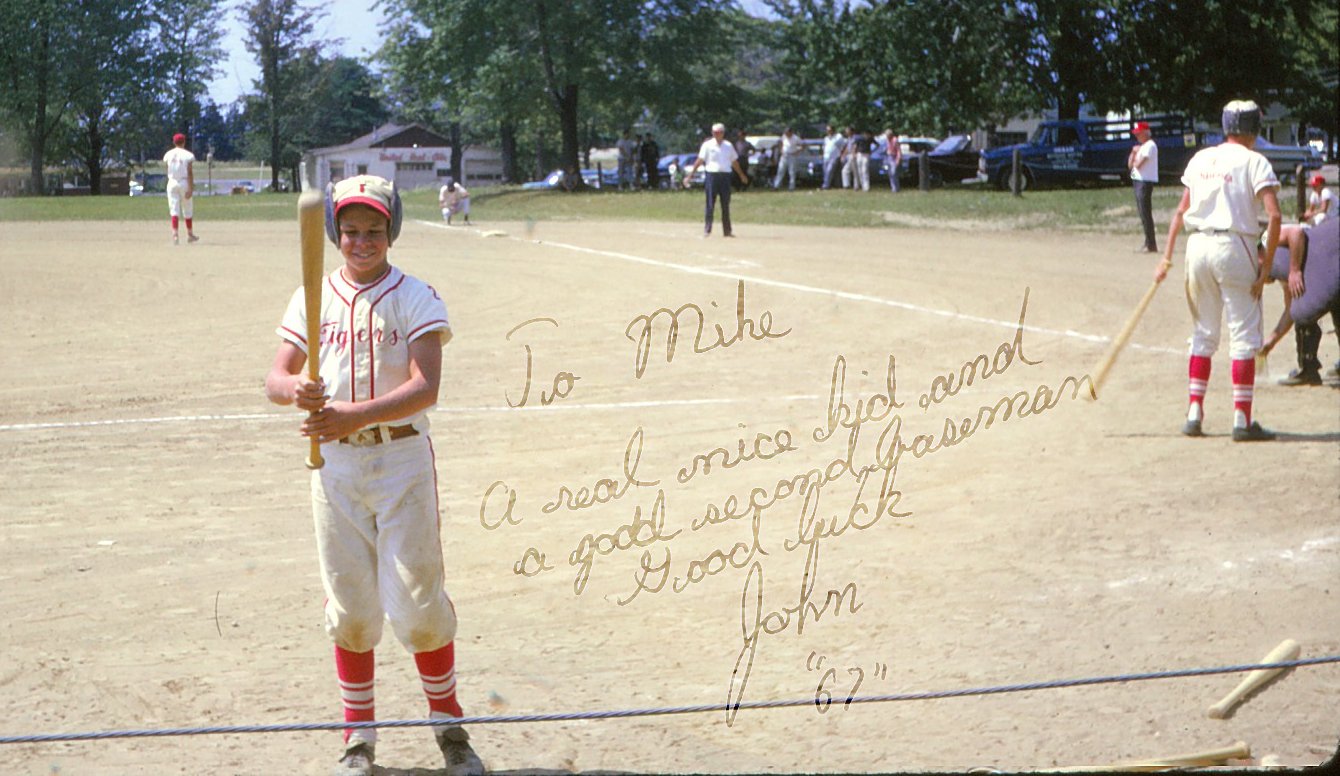 Tigers
To Mike
A real nice kid and
a good second baseman
Good luck
John
"67"